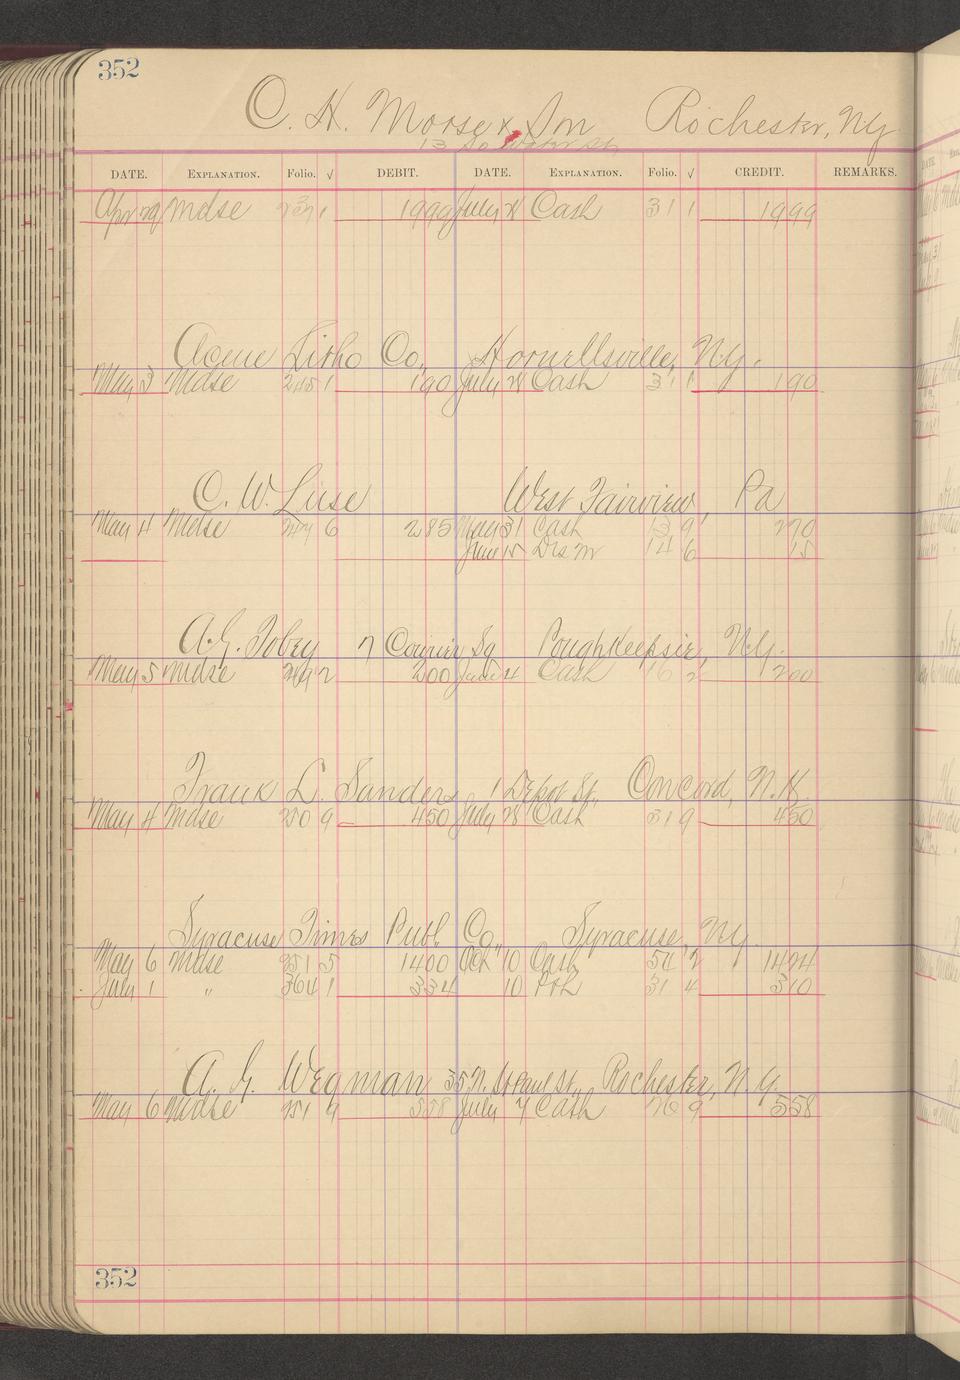 352
C. H. Morse & Son Rochester, N.Y.
13 So Water St.
DATE. EXPLANATION. Folio. √ DEBIT. DATE. EXPLANATION. Folio. √ CREDIT. REMARKS.
Apr 29 Mdse 237 1 1999 July 28 Cash 31 1 1999
Acme Litho Co., Hornellsville, N.Y.
May 3 Mdse 245 1 190 July 28 Cash 31 1 190
C. W. Luse West Fairview, Pa
May 4 Mdse 247 6 285 May 31 Cash 13 9 270
June 15 Dis M 14 6 15
A. G. Tobey 7 Courier Sq Poughkeepsie, N.Y.
May 5 Mdse 249 2 200 June 4 Cash 16 2 200
Frank L. Sanders 1 Depot St., Concord, N.H.
May 4 Mdse 250 9 450 July 28 Cash 31 9 450
Syracuse Times Publ. Co., Syracuse, N.Y.
May 6 Mdse 251 5 1400 Oct 10 Cash 54 2 1424
July 1 " 364 1 334 10 31 4 310
A. G. Wegman 35 N. St Paul St., Rochester, N.Y.
May 6 Mdse 251 9 558 July 7 Cash 26 9 558
352